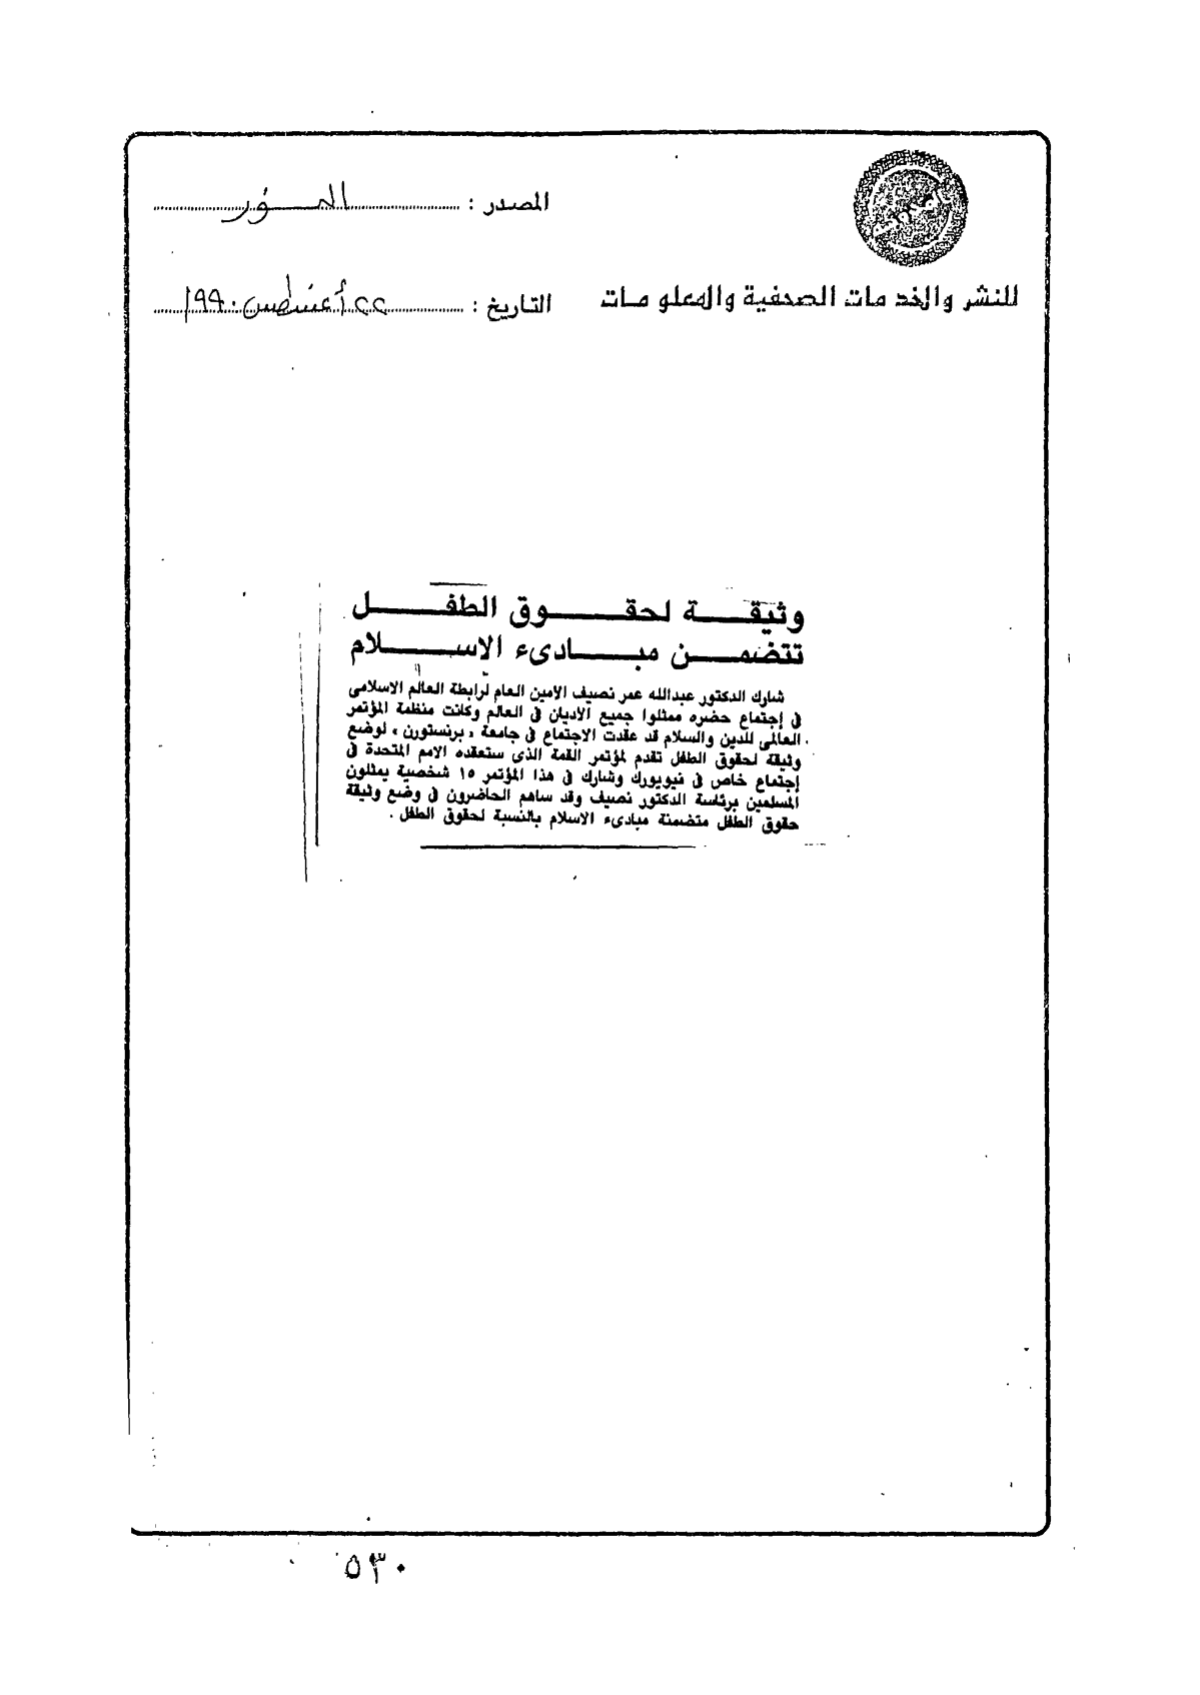 المصدر : النور
للنشر والخدمات الصحفية والمعلومات
التاريخ : ٢٢ أغسطس ١٩٩٠
وثيقة لحقوق الطفل
تتضمن مبادىء الاسلام
شارك الدكتور عبدالله عمر نصيف الأمين العام لرابطة العالم الاسلامى
فى إجتماع حضره ممثلوا جميع الأديان فى العالم وكانت منظمة المؤتمر
العالمى للدين والسلام قد عقدت الاجتماع فى جامعة « برنستورن » لوضع
وثيقة لحقوق الطفل تقدم لمؤتمر القمة الذى ستعقده الامم المتحدة فى
إجتماع خاص فى نيويورك وشارك فى هذا المؤتمر ١٥ شخصية يمثلون
المسلمين برئاسة الدكتور نصيف وقد ساهم الحاضرون فى وضع وثيقة
حقوق الطفل متضمنة مبادىء الاسلام بالنسبة لحقوق الطفل .
٥٣٠